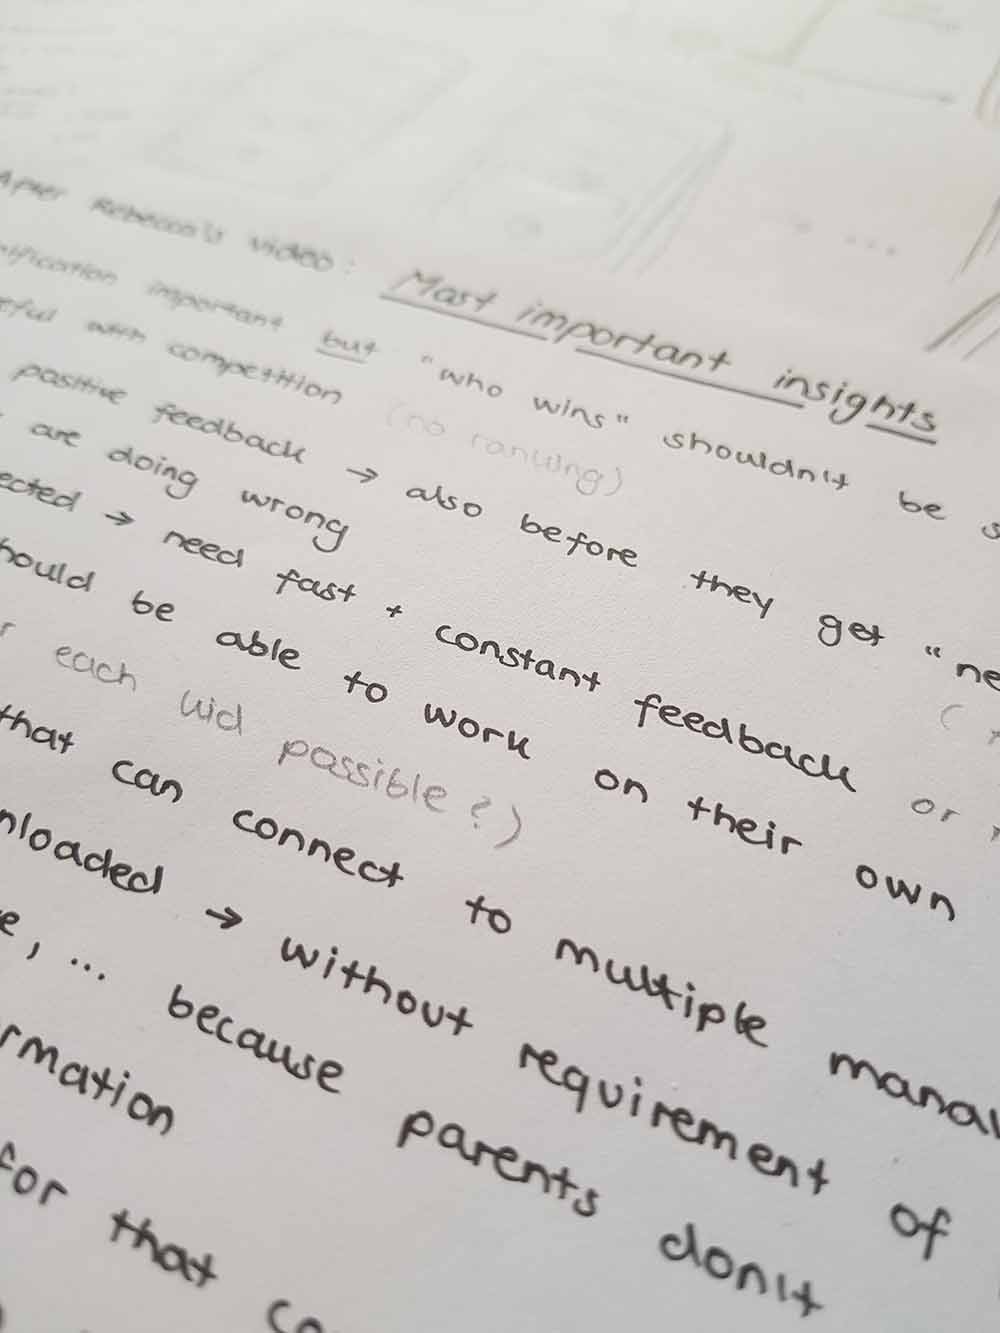 After Rebecca's video: Most important insights
ification important but "who wins" shouldn't be s
eful with competition (no ranking)
positive feedback → also before they get "ne
are doing wrong (
ected → need fast + constant feedback or
hould be able to work on their own
r each kid possible?)
that can connect to multiple manal
nloaded → without requirement of
e, ... because parents don't
rmation
for that co